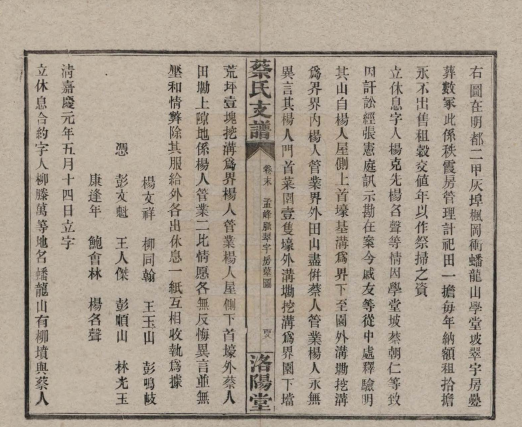 右圖在明都二甲灰埠楓岡衝蟠龍山學堂坡翠字房壘
葬數冢此係秩霞房管理計祀田一擔每年納額租拾擔
永不出售租穀交值年以作祭掃之資
立休息字人楊克先楊名聲等情因學堂坡蔡朝仁等致
因訐訟經張憲庭訊示勘在案今戚友等從中處釋驗明
其山自楊人屋側上首壕基溝為界下至園外溝墈挖溝
為界界內楊人管業界外田山盡倂蔡人管業楊人永無
異言其楊人門首菜園壹隻壕外溝墈挖溝為界園下壋
蔡氏支譜
卷末
孟峰派翠字房菜園
洛陽堂
荒坪壹塊挖溝為界楊人管業楊人屋側下首壕外蔡人
田墈上隙地係楊人管業二比情愿各無反悔異言並無
壓和情弊除其服給外各出休息一紙互相收執為據
楊文祥 柳同翰 王玉山 彭鳴岐
憑 彭文魁 王人傑 彭順山 林光玉
康逢年 鮑會林 楊名聲
清嘉慶元年五月十四日立字
立休息合約字人柳勝萬等地名蟠龍山有柳墳與蔡人